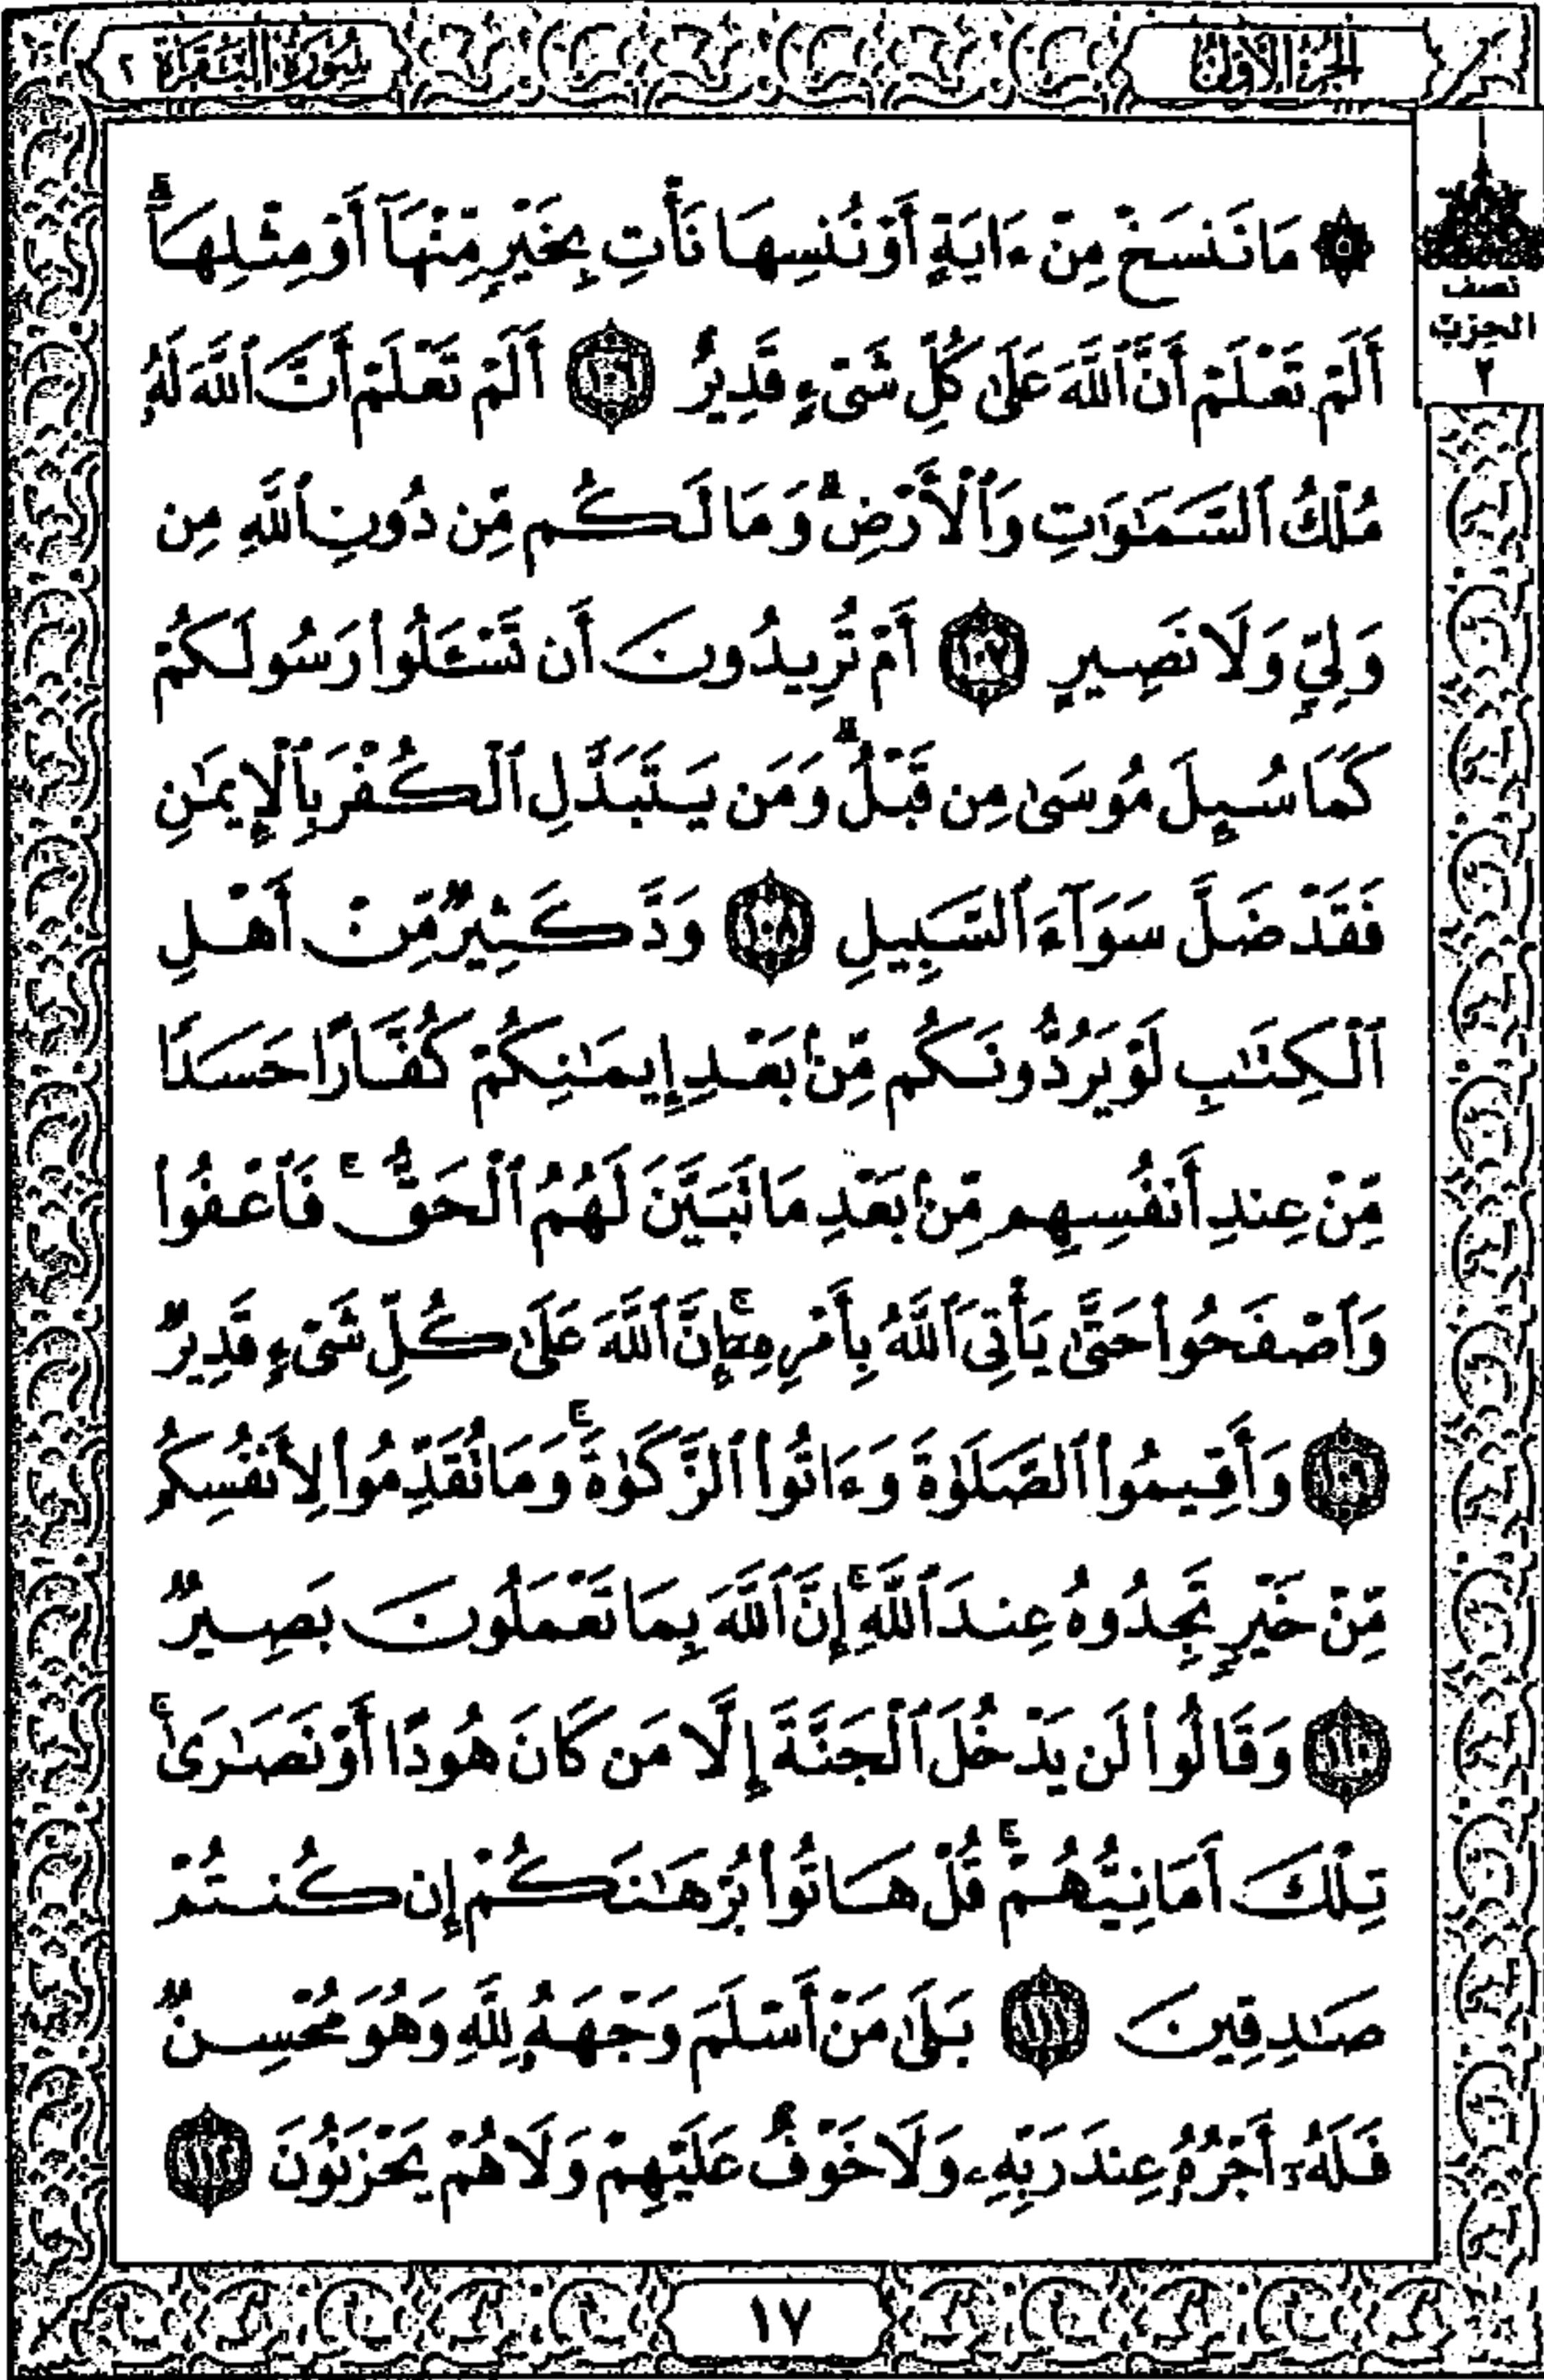 الجزء الأول
سورة البقرة ٢
نصف
الحزب
٢
۞ مَا نَنسَخْ مِنْ ءَايَةٍ أَوْ نُنسِهَا نَأْتِ بِخَيْرٍ مِّنْهَآ أَوْ مِثْلِهَآ ۗ
أَلَمْ تَعْلَمْ أَنَّ ٱللَّهَ عَلَىٰ كُلِّ شَىْءٍ قَدِيرٌ ١٠٦ أَلَمْ تَعْلَمْ أَنَّ ٱللَّهَ لَهُۥ
مُلْكُ ٱلسَّمَـٰوَٰتِ وَٱلْأَرْضِ ۗ وَمَا لَكُم مِّن دُونِ ٱللَّهِ مِن
وَلِىٍّ وَلَا نَصِيرٍ ١٠٧ أَمْ تُرِيدُونَ أَن تَسْـَٔلُوا۟ رَسُولَكُمْ
كَمَا سُئِلَ مُوسَىٰ مِن قَبْلُ ۗ وَمَن يَتَبَدَّلِ ٱلْكُفْرَ بِٱلْإِيمَـٰنِ
فَقَدْ ضَلَّ سَوَآءَ ٱلسَّبِيلِ ١٠٨ وَدَّ كَثِيرٌ مِّنْ أَهْلِ
ٱلْكِتَـٰبِ لَوْ يَرُدُّونَكُم مِّنۢ بَعْدِ إِيمَـٰنِكُمْ كُفَّارًا حَسَدًا
مِّنْ عِندِ أَنفُسِهِم مِّنۢ بَعْدِ مَا تَبَيَّنَ لَهُمُ ٱلْحَقُّ ۖ فَٱعْفُوا۟
وَٱصْفَحُوا۟ حَتَّىٰ يَأْتِىَ ٱللَّهُ بِأَمْرِهِۦٓ ۗ إِنَّ ٱللَّهَ عَلَىٰ كُلِّ شَىْءٍ قَدِيرٌ
١٠٩ وَأَقِيمُوا۟ ٱلصَّلَوٰةَ وَءَاتُوا۟ ٱلزَّكَوٰةَ ۚ وَمَا تُقَدِّمُوا۟ لِأَنفُسِكُم
مِّنْ خَيْرٍ تَجِدُوهُ عِندَ ٱللَّهِ ۗ إِنَّ ٱللَّهَ بِمَا تَعْمَلُونَ بَصِيرٌ
١١٠ وَقَالُوا۟ لَن يَدْخُلَ ٱلْجَنَّةَ إِلَّا مَن كَانَ هُودًا أَوْ نَصَـٰرَىٰ ۗ
تِلْكَ أَمَانِيُّهُمْ ۗ قُلْ هَاتُوا۟ بُرْهَـٰنَكُمْ إِن كُنتُمْ
صَـٰدِقِينَ ١١١ بَلَىٰ مَنْ أَسْلَمَ وَجْهَهُۥ لِلَّهِ وَهُوَ مُحْسِنٌ
فَلَهُۥٓ أَجْرُهُۥ عِندَ رَبِّهِۦ وَلَا خَوْفٌ عَلَيْهِمْ وَلَا هُمْ يَحْزَنُونَ ١١٢
١٧